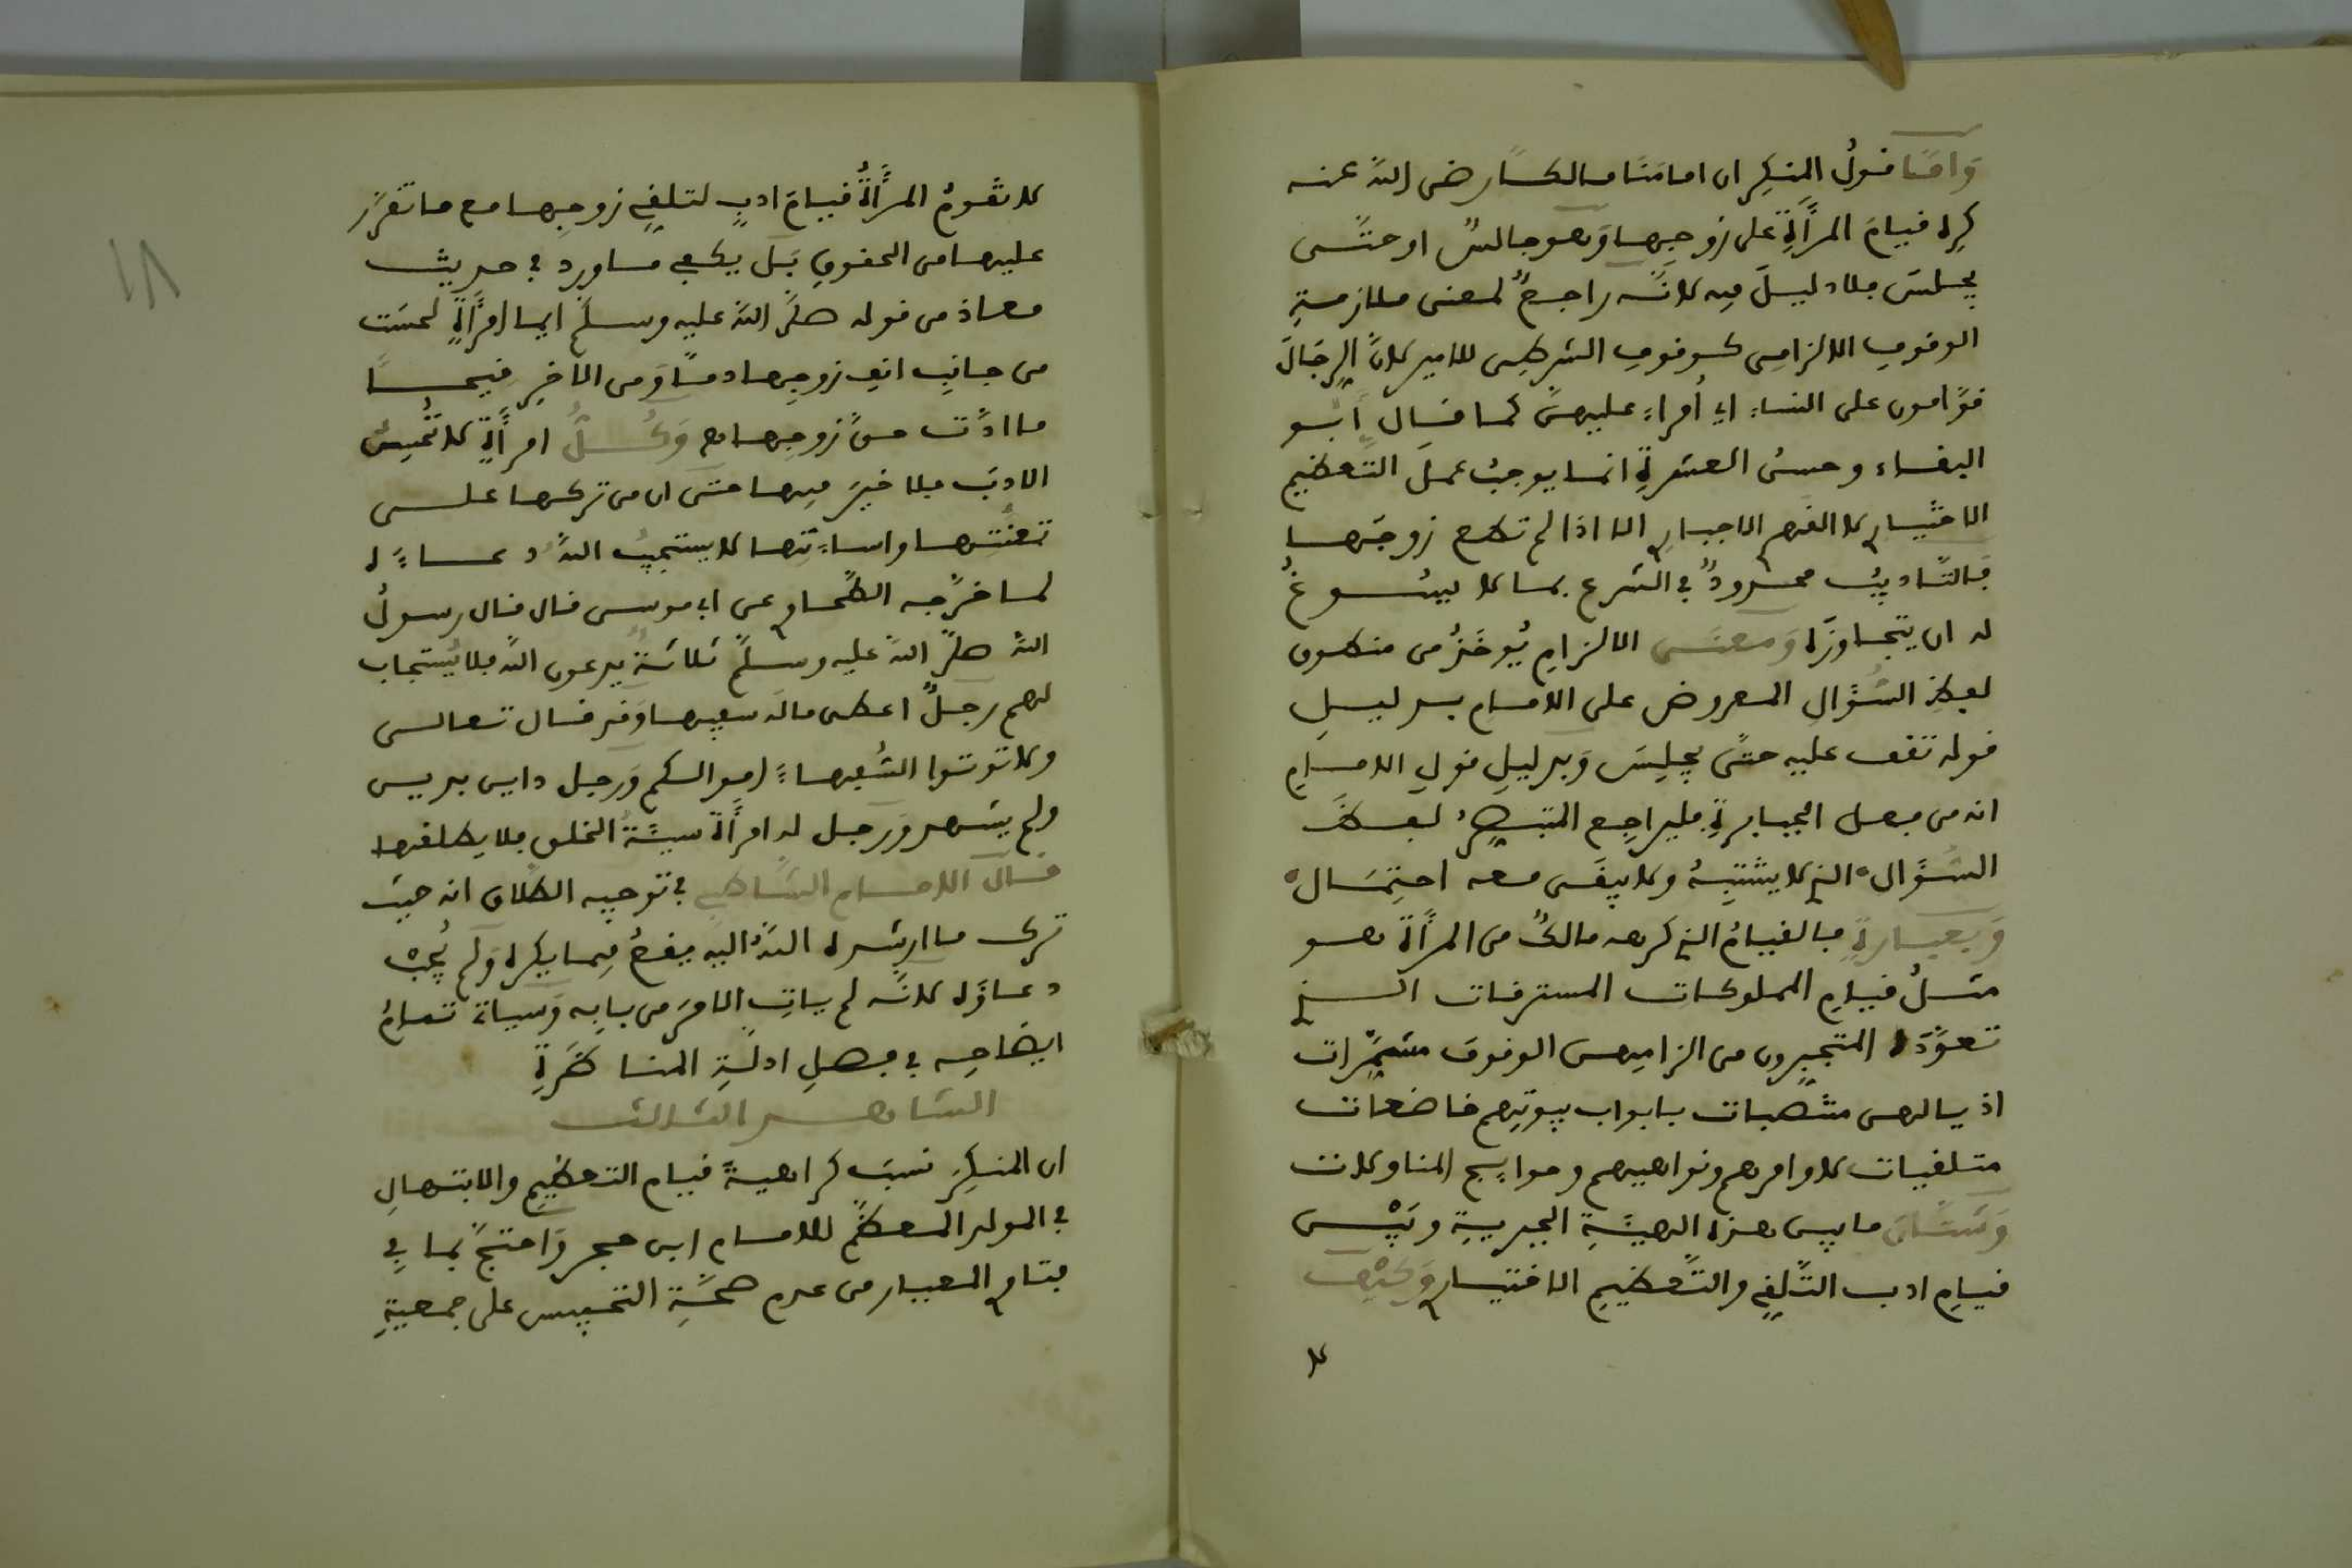 وَامَّا قولُ المنكِرِ ان امامَنَا مالكًا رضى اللهُ عنه
كرِه قيامَ المرأَةِ على زوجِها وَهو جالسٌ او حتَّى
يجلسَ فلا دليلَ فيه لانَّه راجعٌ لمعنى ملازمةِ
الوقوفِ الالزامِى كوقوفِ الشرطِى للامير لانَّ الرِجَالَ
قوَّامون على النساءِ اي أُمراءُ عليهنَّ كما قال أَبو
البقاء وحسنُ العشرةِ انما يوجبُ عملَ التَّعظيمِ
الاختيارِي لا القهرِ الاجبارِي الا اذا لم تطع زوجَها
فالتَّاديبُ محدودٌ في الشرع بما لا يسُوغُ
له ان يتجاوزَه وَمعنَى الالزامِ يُوخَذُ من منطوق
لفظِ السُؤالِ المعروض على الامامِ بدليلِ
قوله تقف عليه حتَّى يجلِسَ وَبدليلِ قولِ الامامِ
انه من فعل الجبابرةِ فليراجِعِ المتبصِّرُ لفظَ
السُؤَالِ الذي لا يشتبِهُ ولا يبقَى معه احتِمَال
وَبعبارةٍ فالقيامُ الذي كرِهه مالكٌ من المرأةِ هو
مثلُ قيامِ المملوكات المسترقات الذي
تعوَّدَه المتجبِّرون من الزامِهن الوقوفَ مشمِّرات
اذيالهن منتصبات بابواب بيوتِهم خاضعات
متلقيات لاوامرهم ونواهيهم وحوايج المناولات
وَشتَّانَ ما بين هذه الهيئَةِ الجبريةِ وبَيْن
قيامِ ادب التَّلقِّي والتَّعظيمِ الاختيارِي وَكيْفَ
لا
لا تقومُ المرأَةُ قيامَ ادبٍ لتلقِّي زوجِها مع ما تقرَّر
عليها من الحقوقِ بَل يكفي ما ورد في حديث
معاذ من قوله صلَّى اللهُ عليه وسلَّم ايما امرأَةٍ لحسَت
من جانِبِ انفِ زوجِها دمًا وَمن الاخرِ قيحًا
ما ادَّت حقَّ زوجِها اهـ وَكُلُّ امرأَةٍ لا تُحسِنُ
الادبَ فلا خيرَ فيها حتى ان من تركها على
تعنُّتِها واساءَتِها لا يستجيبُ اللهُ دعاءًَ له
لما خرَّجه الطحاوي عن ابي موسى قال قال رسولُ
اللهِ صلَّى اللهُ عليه وسلَّم ثلاثةٌ يدعون اللهَ فلا يُستجاب
لهم رجلٌ اعطى مالَه سفيها وَقد قال تعالى
ولا توتوا السُّفهاءَ اموالكم وَرجل داين بدين
ولم يشهد وَرجل له امرأَة سيئةُ الخلق فلا يطلقها
قال الامام الشَّاطبي في توجيه الطَّلاق انه حيثُ
ترك ما ارشده اللهُ اليه يقعُ فيما يكره وَلم يُجَبْ
دعاؤه لانَّه لم ياتِ الامرَ من بابِه وَسياتي تمامُ
ايضاحِه في فصلِ ادلَّةِ المناظرةِ
الشاهد الثالث
ان المنكِرَ نسبَ كراهيةَ قيام التعظيمِ والابتهالِ
في المولد المعظَّم للامام ابن حجر وَاحتجَّ بما في
فتاوِي المعيار من عدم صحَّةِ التحبيس على جمعيةِ
١٨